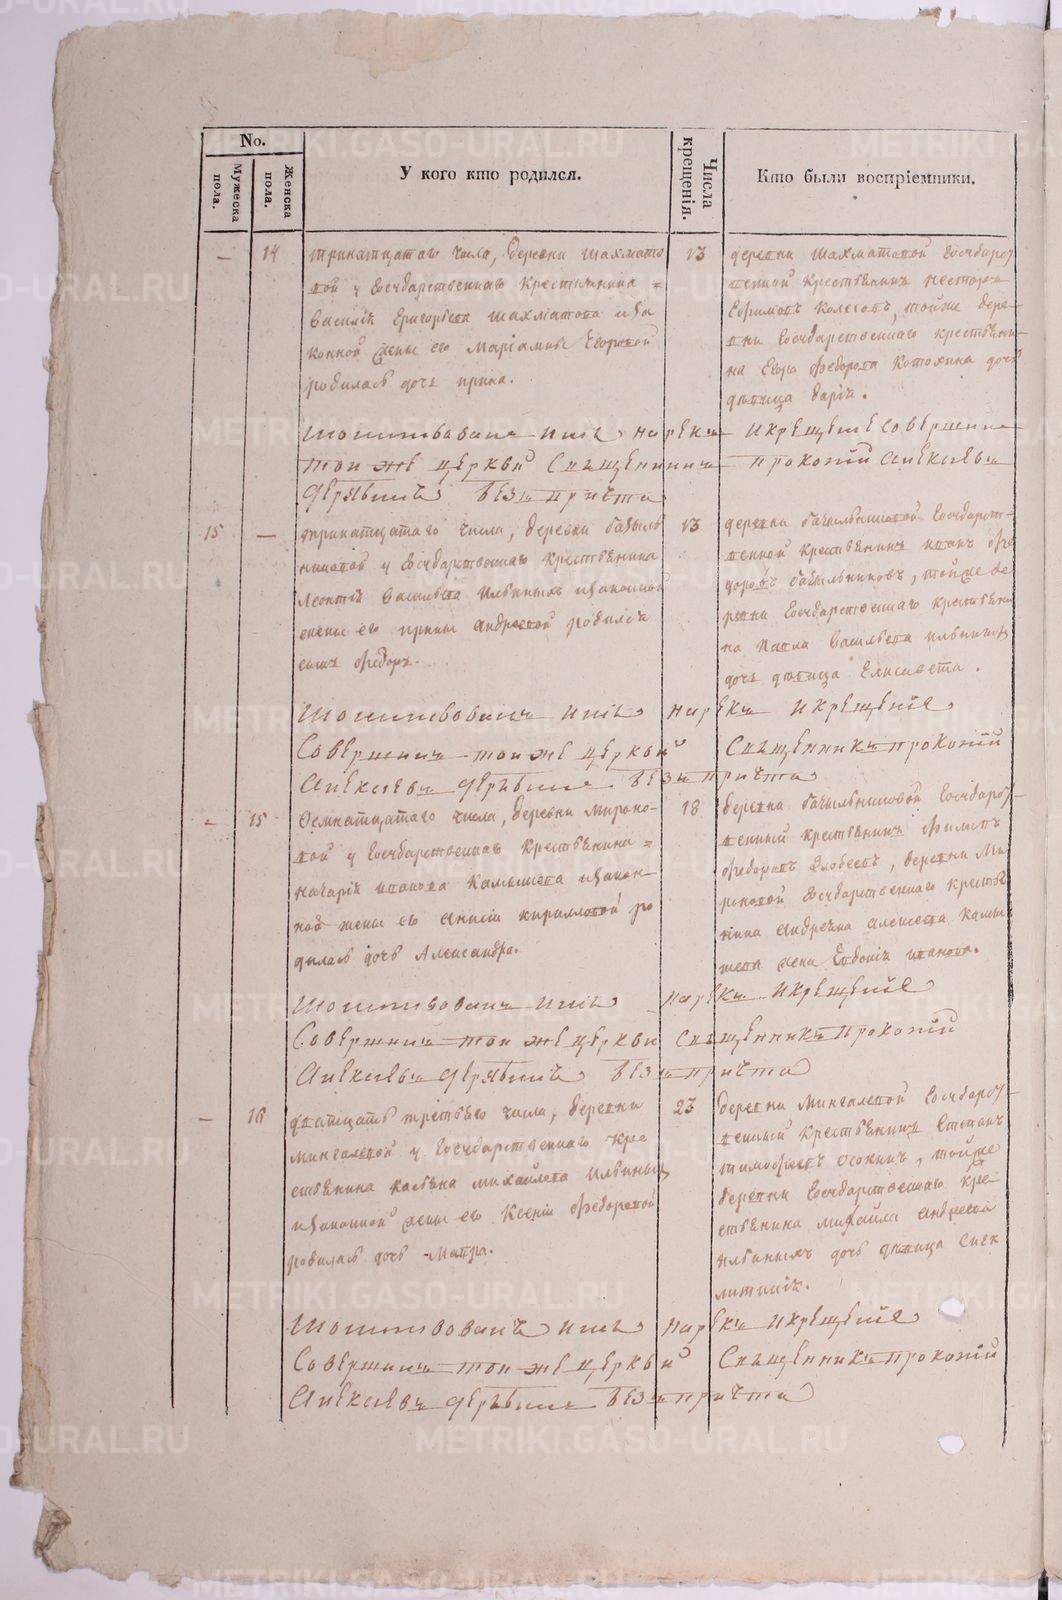 No.
Мужеска пола.
Женска пола.
У кого кто родился.
Числа крещенія.
Кто были воспріемники.
– 14 тринатцатаго числа, деревни шахмато
вой у Государственнаго Крестьянина =
Василія Григорьева шахматова иза
конной жены его Маріамны Егоровой
родилась дочь ирина.
13
деревни шахматовой Государс
твенной Крестьянинъ Несторъ
Ефимовъ Колеговъ, тойже дере=
вни Государственнаго крестьяни
на Егора Федорова Котохина дочь
дѣвица дарія.
Молитвовалъ имя нарекъ икрещение совершилъ
тои же церкви Священникъ прокопій алексѣевъ
дерябинъ безъ причта
15 – тринатцатаго числа, деревни бахыль
никовой у Государственнаго крестьянина
Леонтія Васильева Ильиныхъ изаконной
жены его ирины андреевой родился
сынъ Федоръ.
13
деревни бахыльниковой Государст=
венной крестьянинъ иванъ Фе
доровъ бахыльниковъ, тойже де
ревни Государственнаго крестьяни
на Павла Васильева ильиныхъ
дочь дѣвица Елисавета.
Молитвовалъ имя нарекъ икрещение
Совершилъ тои же церкви Священникъ прокопій
Алексѣевъ дерябинъ безъ причта
– 15 Осмнатцатаго числа, деревни Мироно=
вой у Государственнаго Крестьянина =
Макарія иванова Камышева изакон=
ной жены его Анисіи кириловой ро
дилась дочь Александра.
18
деревни бахыльниковой Государс
твенный крестьянинъ Филипъ
Федоровъ, деревни Ми
роновой Государственнаго крестья
нина андреяна алексеева Камы
шева жена Евдокія иванова.
Молитвовалъ имя нарекъ икрещение
Совершилъ тои же церкви Священникъ прокопій
Алексѣевъ дерябинъ безъ причта
– 16 дватцать третьяго числа, деревни
мингалевой у Государственнаго кре
стьянина михайлова Ильиныхъ
изаконной жены его Ксеніи Федоровой
родилась дочь Мавра.
23
деревни Мингалевой Государс
твенный крестьянинъ Степанъ
тимофеевъ осокинъ, тойже
деревни Государственнаго кре=
стьянина Михайла андреева
ильиныхъ дочь дѣвица Сик
литикія.
Молитвовалъ имя нарекъ икрещение
Совершилъ тои же церкви Священникъ прокопій
Алексѣевъ дерябинъ безъ причта
METRIKI.GASO-URAL.RU